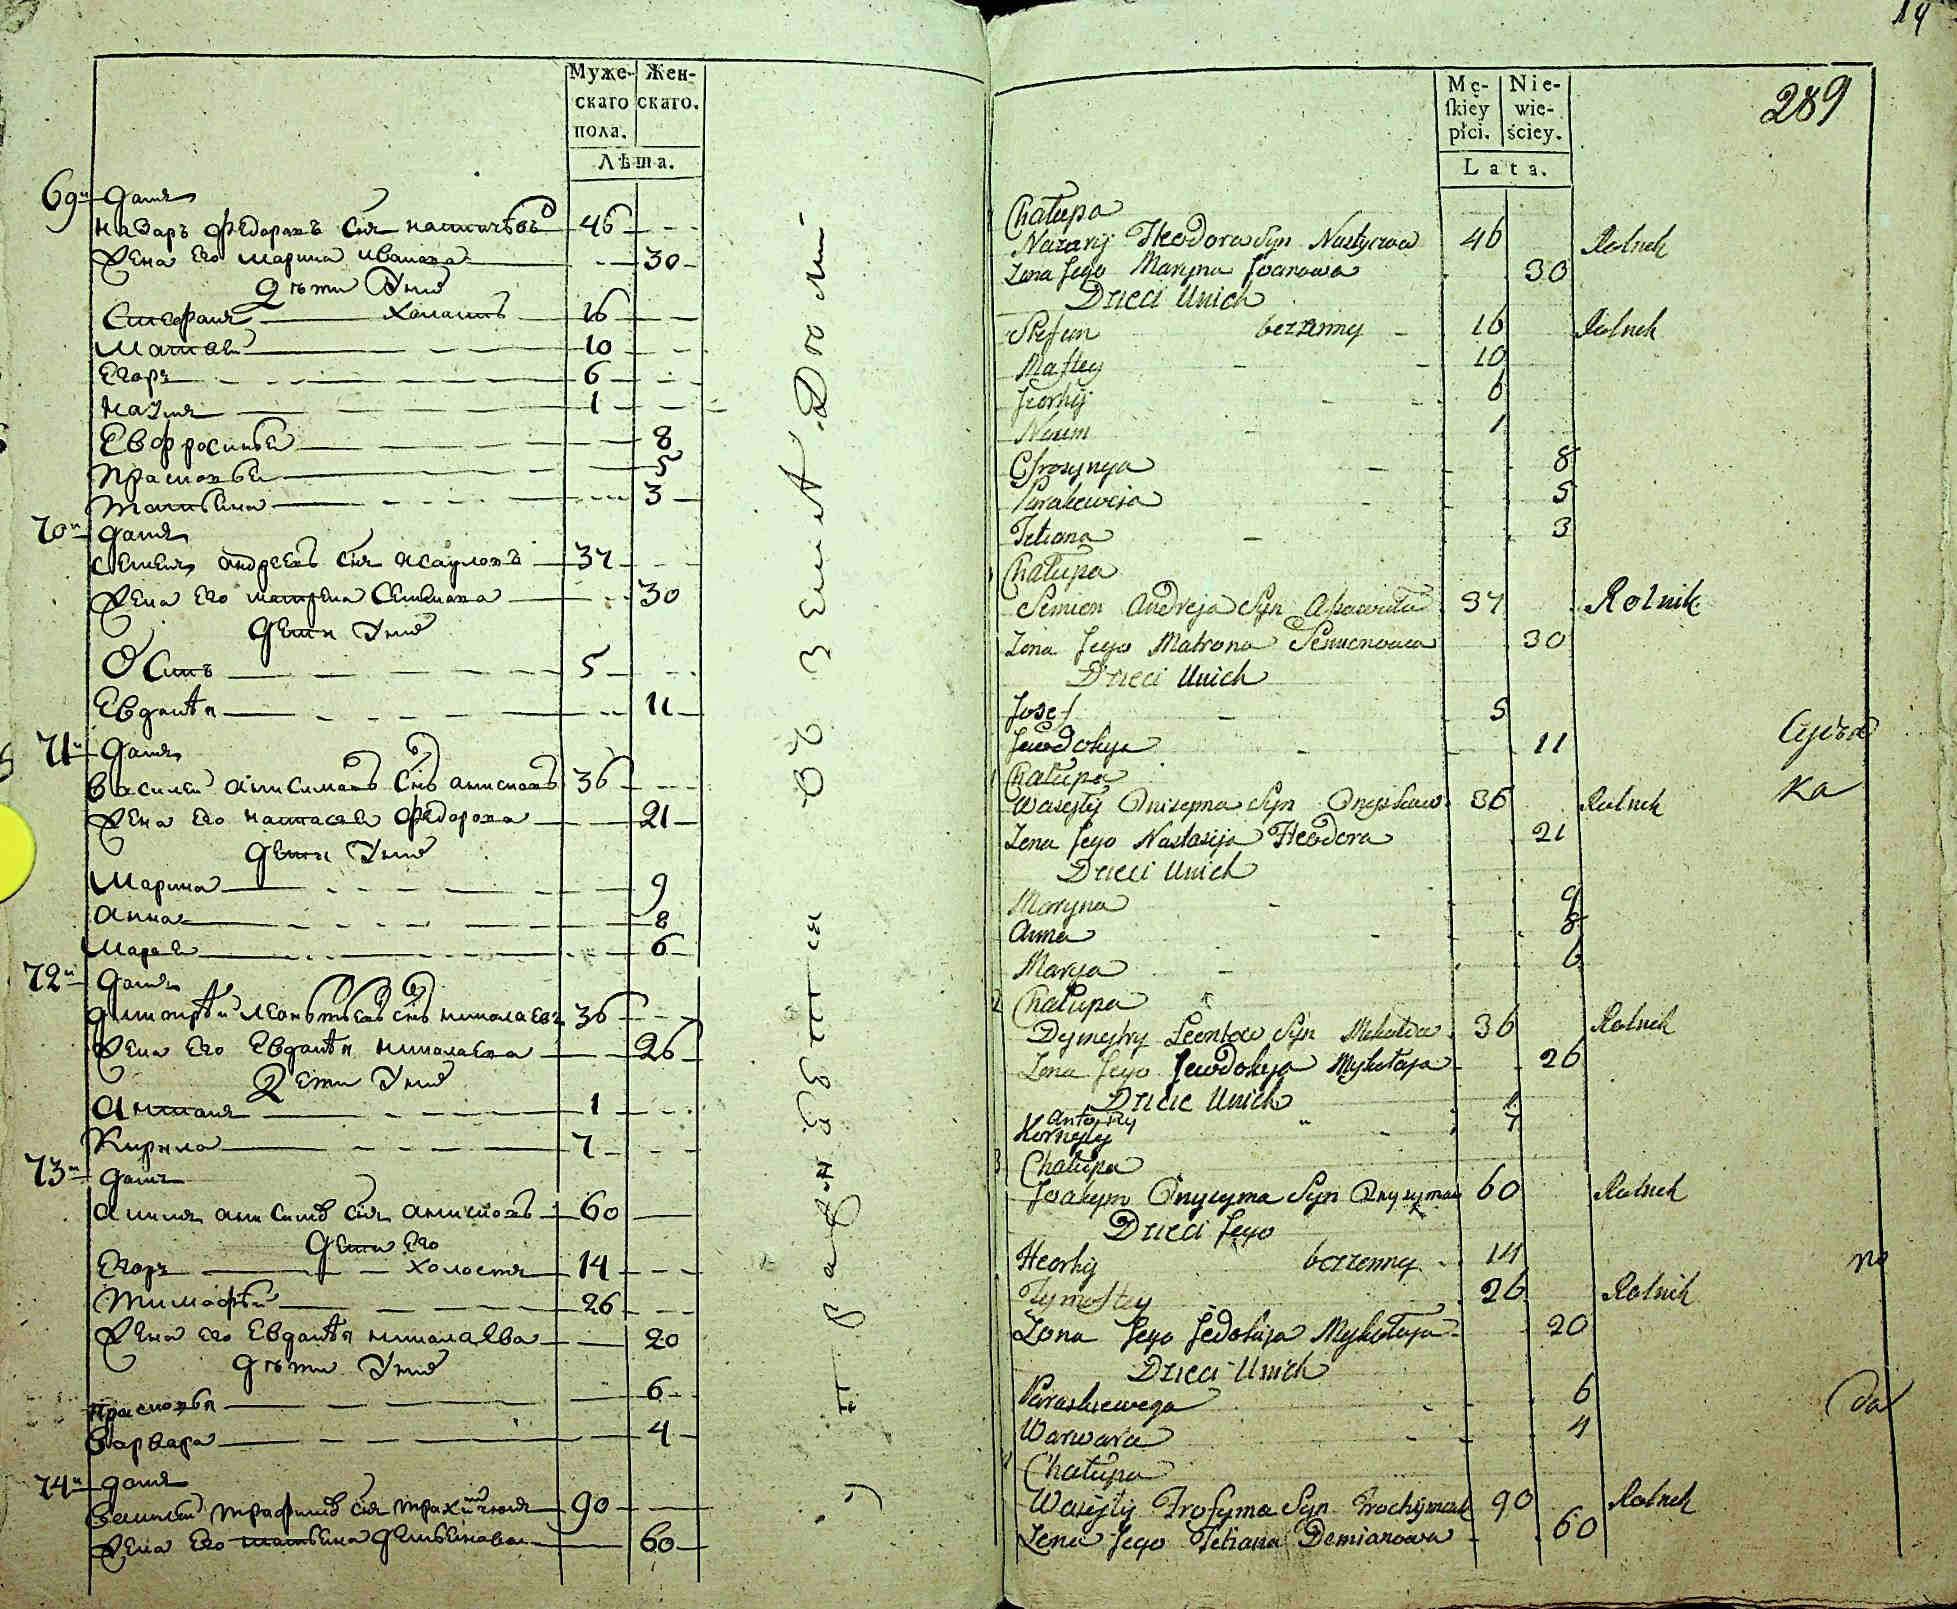 Муже-
скаго
пола.
Жен-
скаго.
Лѣта.
69й домъ
Назаръ Федоровъ сынъ 46
Жена его Марина Иванова 30
Дѣти Ихъ
Стефанъ Холостъ 16
Матвей 10
Егоръ 6
Наумъ 1
Евфросинья 8
Прасковья 5
Татьяна 3
70й домъ
Семенъ Андреевъ сынъ 37
Жена его Матрена Семенова 30
Дети Ихъ
Осипъ 5
Евдокѣя 11
71й домъ
Василей Анисимовъ снъ 36
Жена его Настасея Федорова 21
Дети Ихъ
Марина 9
Анна 8
Марея 6
72й домъ
Дмитрѣй Леонтьевъ снъ Николаевъ 36
Жена его Евдокѣя Николаева 26
Дети Ихъ
Антонъ 1
Кирила 7
73й домъ
Анисимовъ сынъ 60
Дети его
Егоръ холостъ 14
Тимофѣй 26
Жена его Евдокѣя Николаева 20
Дѣти Ихъ
Прасковья 6
Варвара 4
74й домъ
Василей Трофимовъ сынъ 90
Жена его Татьяна Демьянова 60
14
289
Mę-
ſkiey
płci.
Nie-
wie-
ściey.
Lata.
Chałupa
Nazarij Theodora Syn 46 Rolnik
Zona Jego Maryna Iwanowa 30
Dzieci Unich
Stefan bezzenny 16 Rolnik
Matſey 10
Jeorhij 6
Naum 1
Efrozynya 8
Parakewia 5
Tetiana 3
Chałupa
Semion Andreja Syn 37 Rolnik
Zona Jego Matrona Semenowa 30
Dzieci Unich
Josef 5
Jewdokya 11
1 Chałupa
Wasyly Onisyma Syn 36 Rolnik
Zona Jego Nastasija Theodora 21
Dzieci Unich
Maryna 9
Anna 8
Marya 6
2 Chałupa
Dymytry Leontew Syn 36 Rolnik
Zona Jego Jewdokya Mykołaja 26
Dzieci Unich
Antoniy 1
Kornyły 7
3 Chałupa
Joakym Onysyma Syn 60 Rolnik
Dzieci Jego
Heorhy bezzenny 14
Tymoſtey 26 Rolnik
Żona Jego Jedokija Mykołaja 20
Dzieci Unich
Paraskewega 6
Warwara 4
4 Chałupa
Wasyły Trofyma Syn 90 Rolnik
Zona Jego Tetiana Demianowa 60